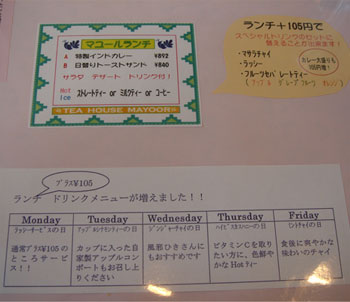 マユールランチ
A 特製インドカレー ¥892
B 日替りトーストサンド ¥840
サラダ デザート ドリンク付!
Hot
ice ストレートティー or ミルクティー or コーヒー
TEA HOUSE MAYOOR
ランチ+105円で
スペシャルドリンクのセットに
替えることが出来ます!
・マサラチャイ
・ラッシー
・フルーツセパレートティー
カレー大盛りも
105円増!
プラス¥105
ランチ ドリンクメニューが増えました!!
Monday
ラッシーサービスの日
通常プラス¥105の
ところサービ
ス!!
Tuesday
カップに入った自
家製アップルコン
ポートもお召し上
りください
Wednesday
ジンジャーチャイの日
風邪ひきさんに
もおすすめです
Thursday
ハイビスカスハニーの日
ビタミンCを取り
たい方に、色鮮や
かな Hot ティー
Friday
ミントチャイの日
食後に爽やかな
味わいのチャイ